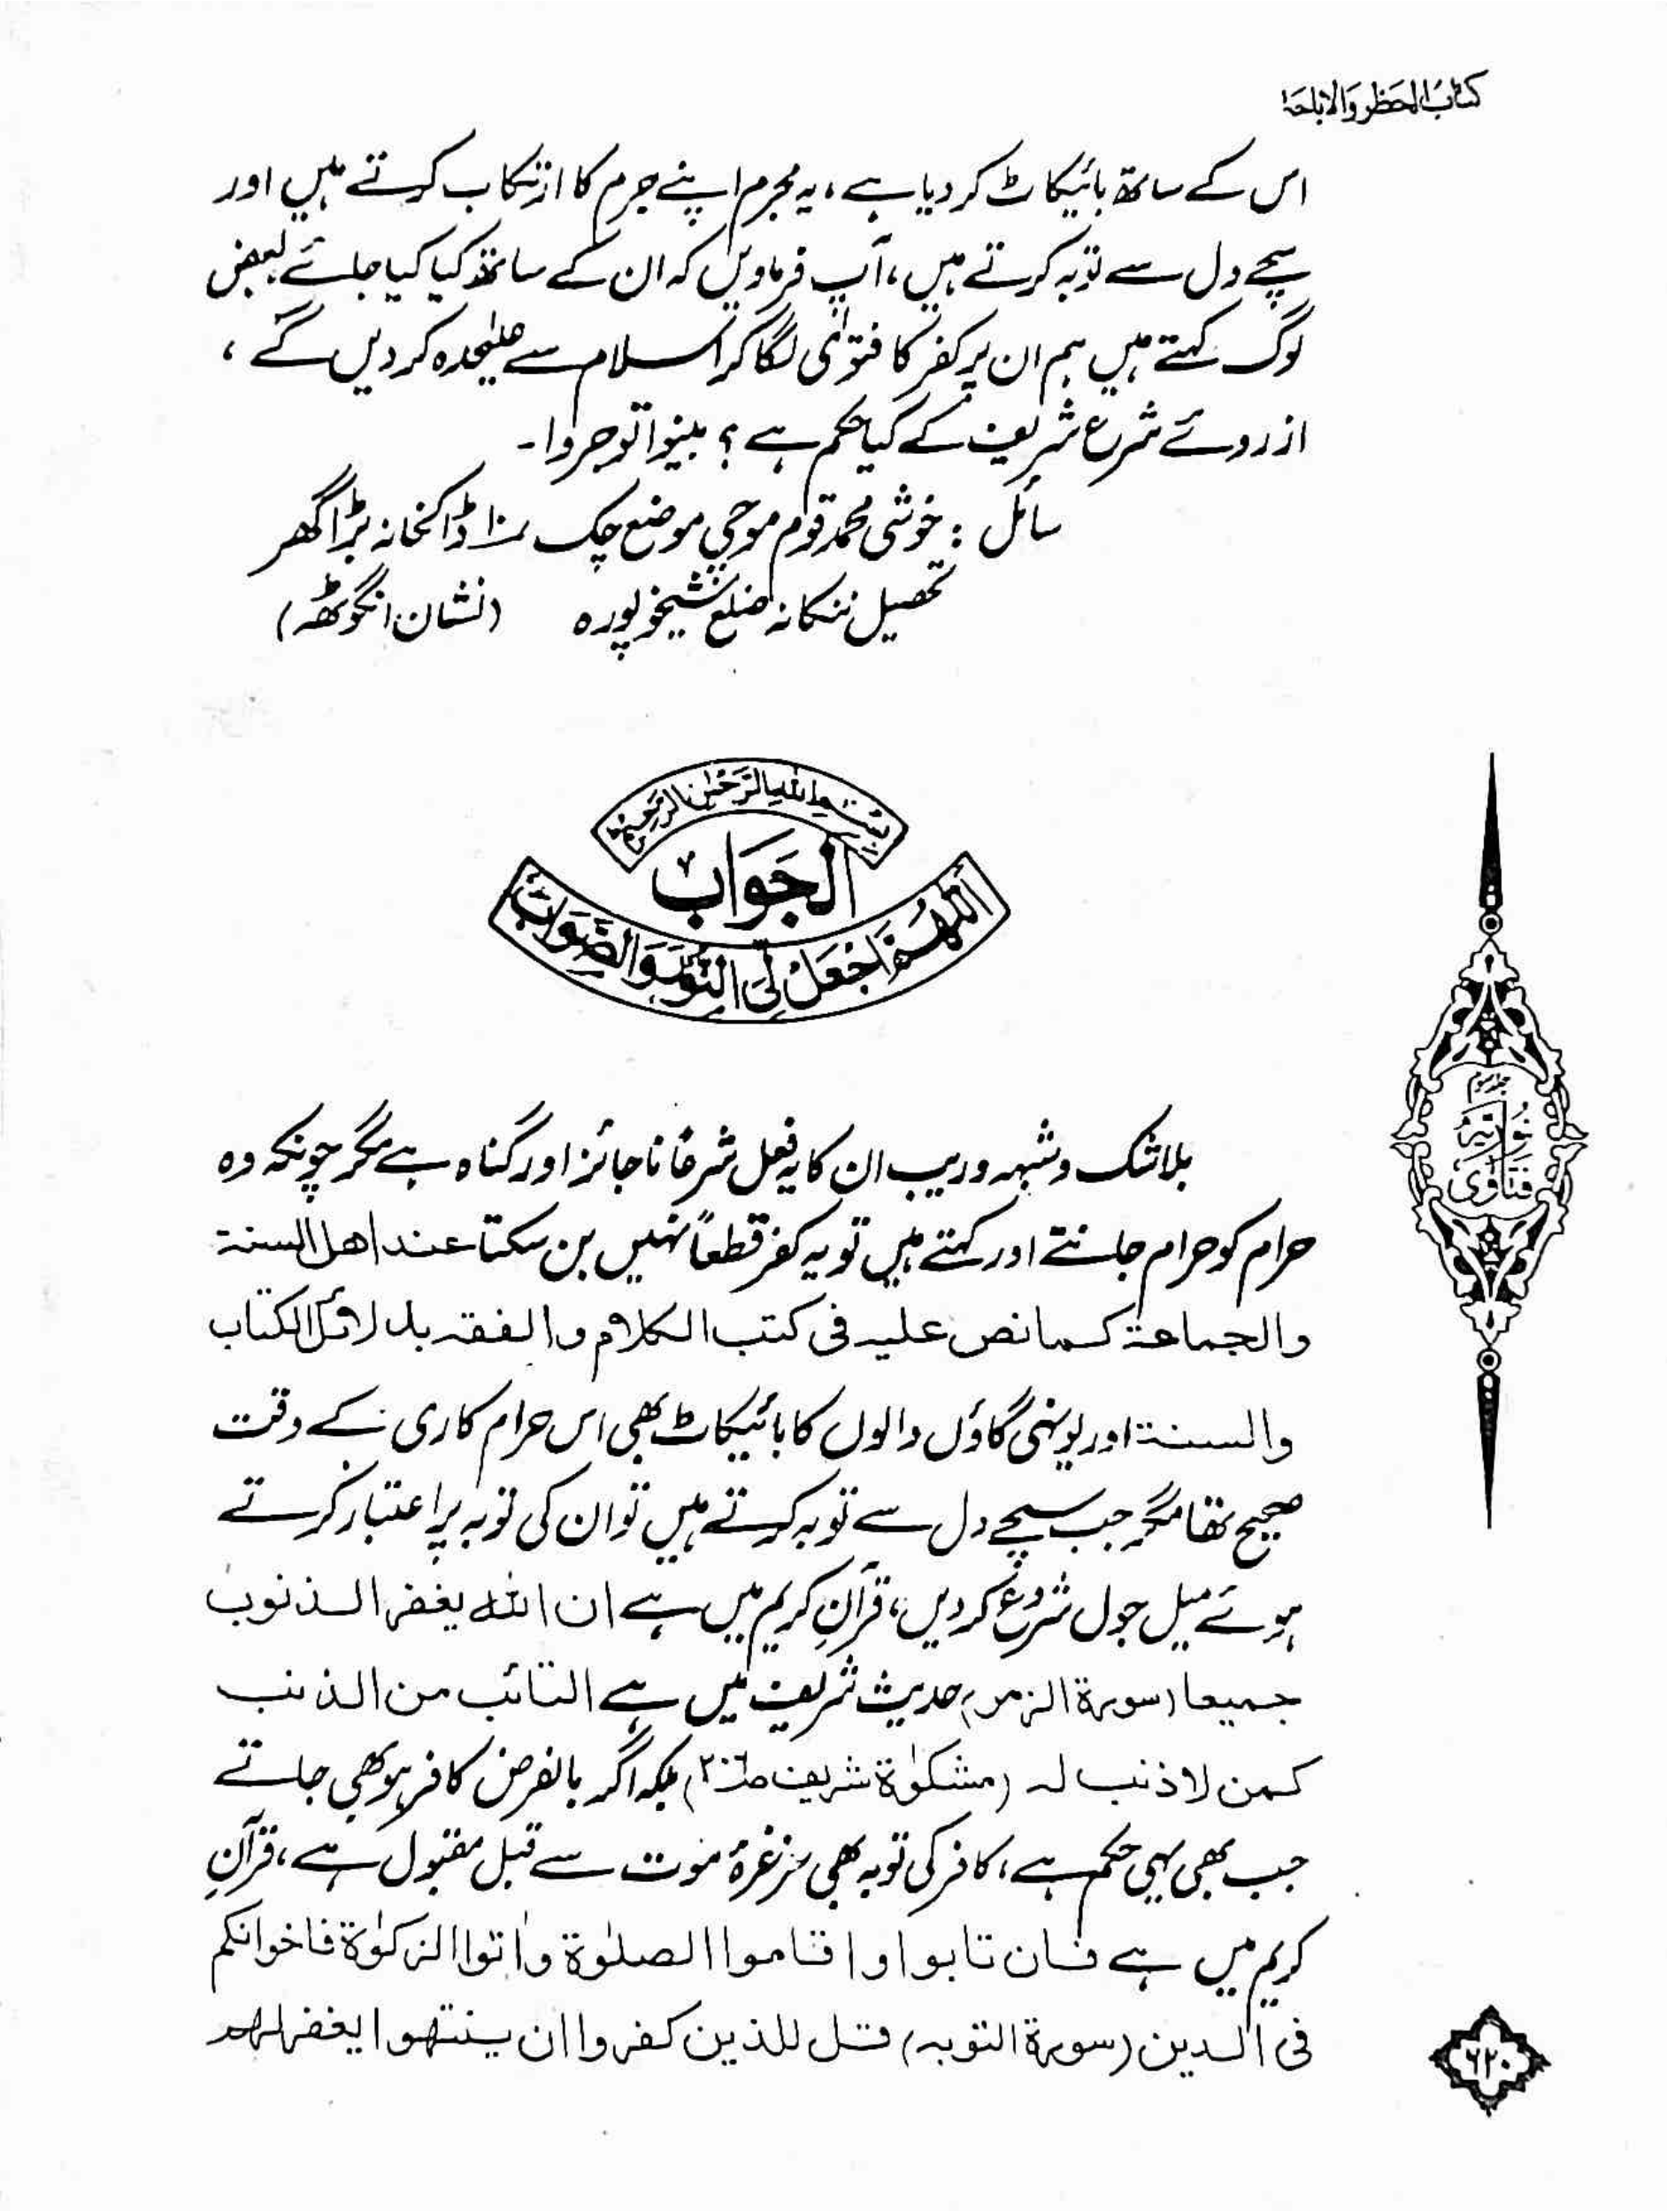 کتاب الحظر والاباحۃ
اس کے ساتھ بائیکاٹ کر دیا ہے، یہ مجرم اپنے جرم کا ارتکاب کرتے ہیں اور
سچے دل سے توبہ کرتے ہیں، آپ فرماویں کہ ان کے ساتھ کیا کیا جائے بعض
لوگ کہتے ہیں ہم ان پر کفر کا فتوٰی لگا کر اسلام سے علیٰحدہ کر دیں گے،
ازروئے شرع شریف کے کیا حکم ہے؟ بینوا توجروا۔
سائل: خوشی محمد قوم موچی موضع چک ڈاکخانہ بڑا گھر
تحصیل ننکانہ ضلع شیخوپورہ (نشان انگوٹھہ)
بِسْمِ اللہِ الرَّحْمٰنِ الرَّحِیْمِ
الجَوَاب
اَللّٰهُمَّ اجْعَلْ لِیَ النُّوْرَ وَالصَّوَابَ
بلاشک وشبہہ وریب ان کا یہ فعل شرعًا ناجائز اور گناہ ہے مگر چونکہ وہ
حرام کو حرام جانتے اور کہتے ہیں تو یہ کفر قطعاً نہیں بن سکتا عند اھل السنۃ
والجماعۃ کما نص علیہ فی کتب الکلام والفقہ بدلائل الکتاب
والسنۃ اور یونہی گاؤں والوں کا بائیکاٹ بھی اس حرام کاری کے وقت
صحیح تھا مگر جب سچے دل سے توبہ کرتے ہیں تو ان کی توبہ پر اعتبار کرتے
ہوئے میل جول شروع کر دیں، قرآنِ کریم میں ہے ان اللہ یغفر الذنوب
جمیعا (سورۃ الزمر) حدیث شریف میں ہے التائب من الذنب
کمن لا ذنب لہ (مشکوٰۃ شریف ص۲۰۶) بلکہ اگر بالفرض کافر ہو بھی جاتے
جب بھی یہی حکم ہے، کافر کی توبہ بھی غرغرۂ موت سے قبل مقبول ہے، قرآنِ
کریم میں ہے فان تابوا و اقاموا الصلوٰۃ واٰتوا الزکوٰۃ فاخوانکم
فی الدین (سورۃ التوبہ) قل للذین کفروا ان ینتھوا یغفر لھم
فتاوی نوریہ
۶۲۰